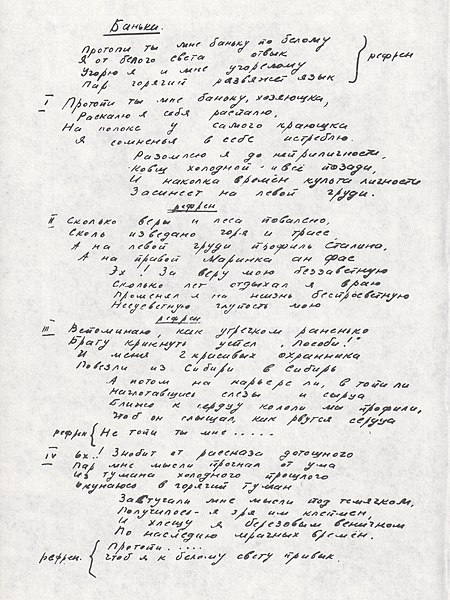 Банька.
Протопи ты мне баньку по белому
Я от белого света отвык
Угорю я и мне угорелому
Пар горячий развяжет язык
} рефрен
I Протопи ты мне баньку, хозяюшка,
Раскалю я себя распалю,
На полоке у самого краюшка
Я сомненья в себе истреблю.
Разомлею я до неприличности,
Ковш холодной и всё позади,
И наколка времён культа личности
Засинеет на левой груди.
рефрен
II Сколько веры и леса повалено,
Сколь изведано горя и трасс
А на левой груди профиль Сталина,
А на правой Маринка ан фас
Эх! За веру мою беззаветную
Сколько лет отдыхал я в раю
Променял я на жизнь беспросветную
Несусветную глупость мою
рефрен
III Вспоминаю, как утречком раненько
Брату крикнуть успел „Пособи!"
И меня 2 красивых охранника
Повезли из Сибири в Сибирь
А потом на карьере ли, в топи ли
Наглотавшись слезы и сырца
Ближе к сердцу кололи мы профили,
Чтоб он слышал, как рвутся сердца
рефрен { Не топи ты мне . . . . .
IV Ох..! Знобит от рассказа дотошного
Пар мне мысли прогнал от ума
Из тумана холодного прошлого
Окунаюсь в горячий туман
Застучали мне мысли под темячком,
Получилось - я зря им клеймен,
И хлещу я березовым веничком
По наследию мрачных времен.
рефрен. { Протопи. . . . .
чтоб я к белому свету привык.